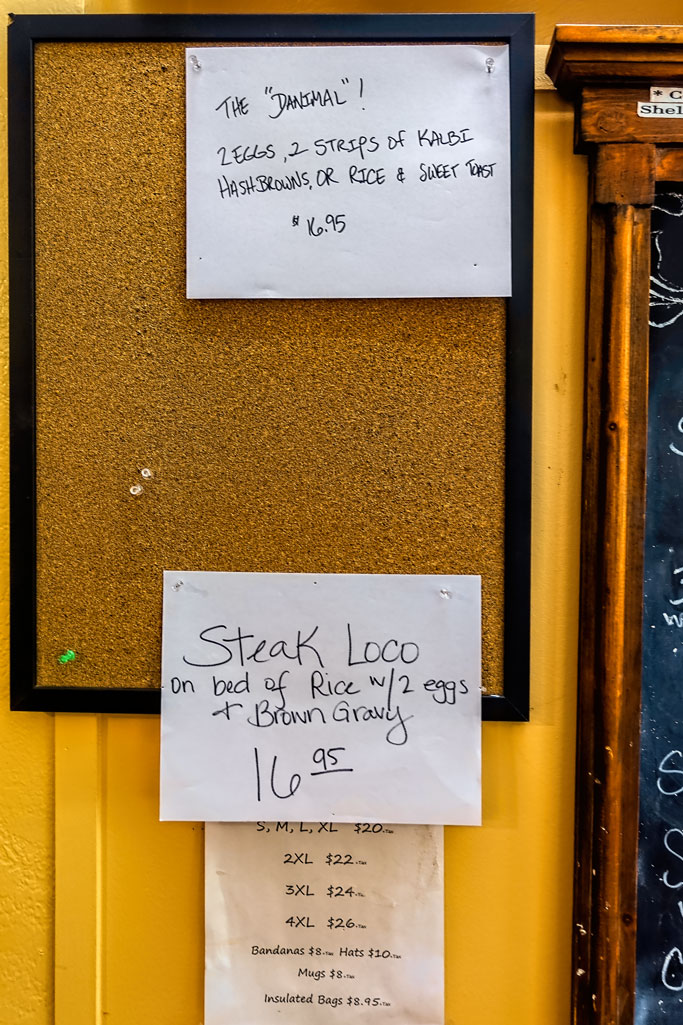 THE "DANIMAL"!
2 EGGS, 2 STRIPS OF KALBI
HASHBROWNS, OR RICE & SWEET TOAST
$16.95
* C
Shel
Steak Loco
on bed of Rice w/2 eggs
+ Brown Gravy
16 95
S, M, L, XL $20.+Tax
2XL $22.+Tax
3XL $24.+Tax
4XL $26.+Tax
Bandanas $8.+Tax Hats $10.+Tax
Mugs $8.+Tax
Insulated Bags $8.95.+Tax